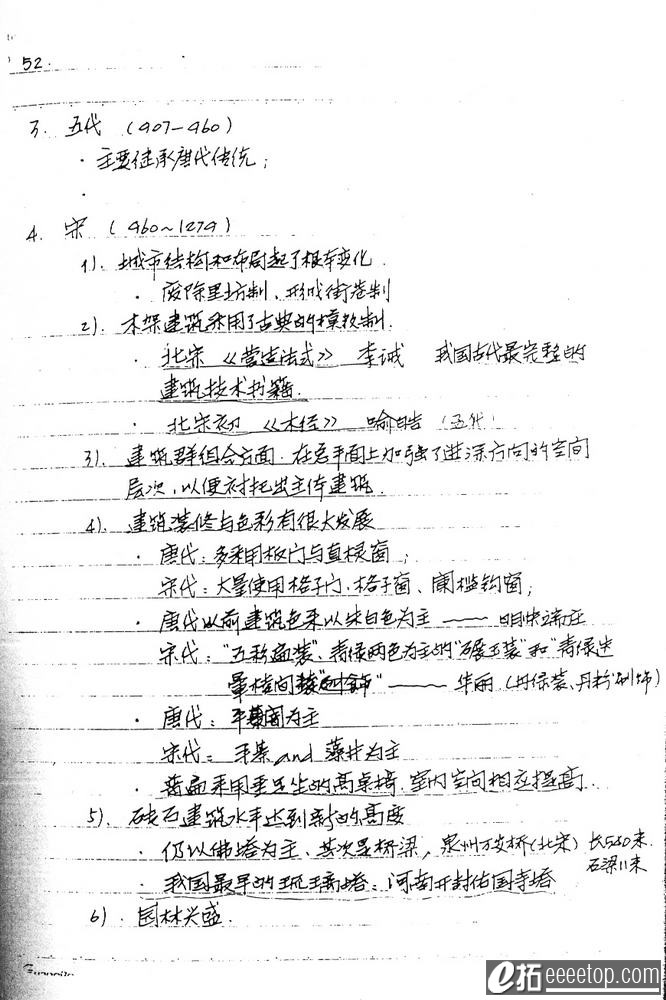 52.
3. 五代 (907-960)
· 主要继承唐代传统;
·
4. 宋 (960~1279)
1). 城市结构和布局起了根本变化
· 废除里坊制、形成街巷制
2). 木架建筑采用了古典的模数制.
· 北宋 《营造法式》 李诫 我国古代最完整的
建筑技术书籍.
· 北宋初 《木经》 喻皓 (五代)
3). 建筑群组合方面. 在总平面上加强了进深方向的空间
层次, 以便衬托出主体建筑.
4). 建筑装修与色彩有很大发展
· 唐代: 多采用板门与直棂窗;
宋代: 大量使用格子门、格子窗、阑槛钩窗;
· 唐代以前建筑色采以朱白色为主 —— 明快端庄
宋代: "五彩遍装"、青绿两色为主的"碾玉装"和"青绿叠
晕棱间装" —— 华丽 (丹绿装、丹粉刷饰)
· 唐代: 平闇为主
宋代: 平棊 and 藻井为主
· 普遍采用垂足坐的高桌椅. 室内空间相应提高.
5). 砖石建筑水平达到新的高度
· 仍以佛塔为主、其次是桥梁, 泉州万安桥(北宋) 长540米.
石梁11米
· 我国最早的琉璃塔: 河南开封佑国寺塔
6). 园林兴盛.
e拓 eeeetop.com